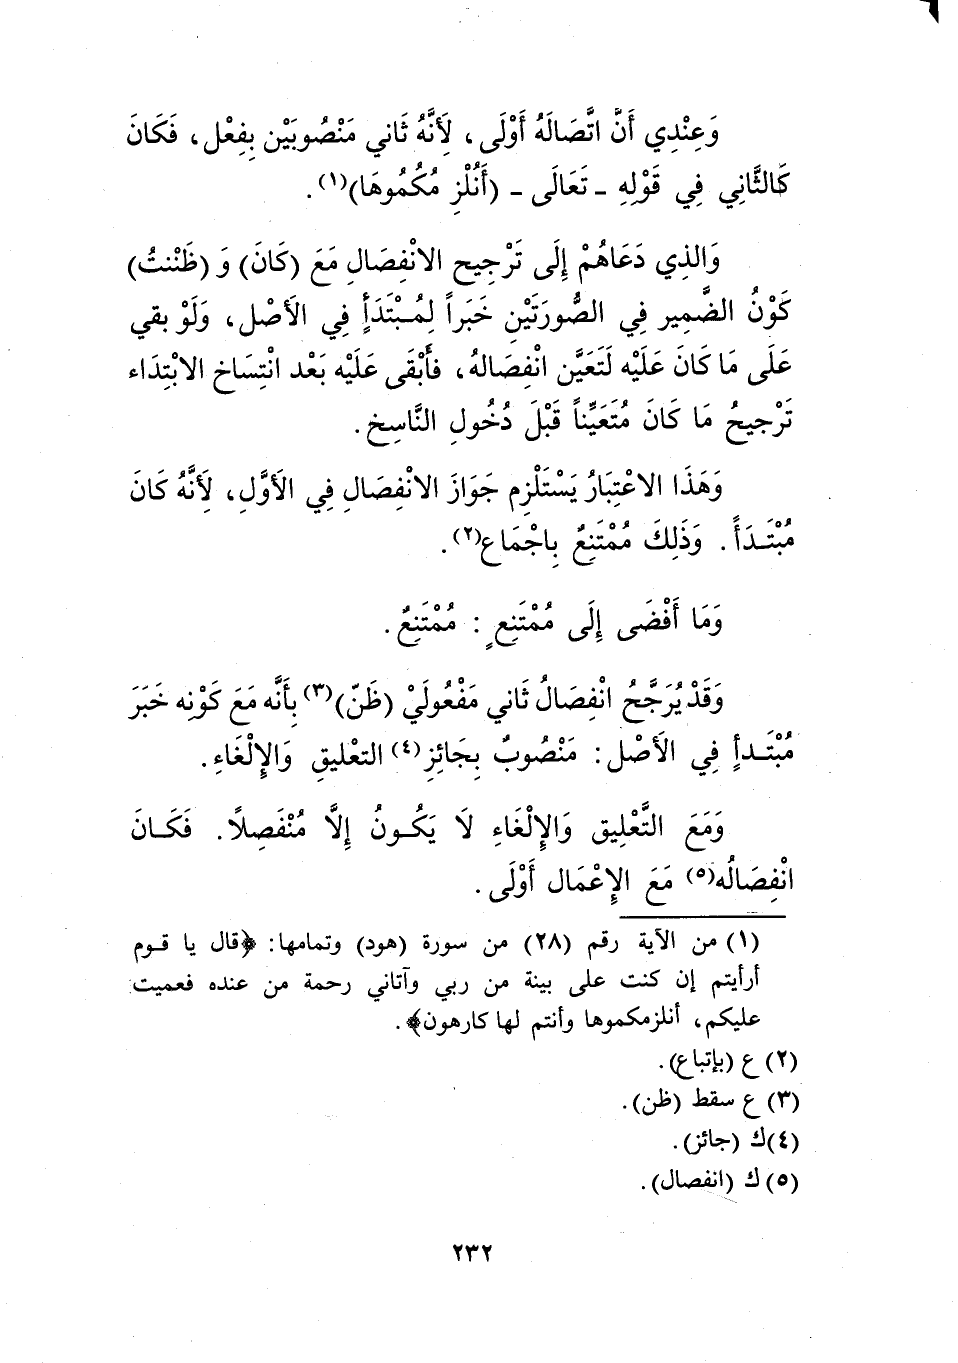 وَعِنْدِي أَنَّ اتَّصَالَهُ أَوْلَى، لِأَنَّهُ ثَاني مَنْصُوبَيْن بِفِعْل، فَكَانَ
كَالثَّانِي فِي قَوْلِهِ - تَعَالَى - (أَنُلْزِ مُكُمُوهَا)(١).
وَالذِي دَعَاهُمْ إِلَى تَرْجِيح الانْفِصَالِ مَعَ (كَانَ) وَ (ظَنْنتُ)
كَوْنُ الضَّمِير فِي الصُّورَتَيْنِ خَبَراً لِمُبْتَدَأٍ فِي الأَصْل، وَلَوْ بقي
عَلَى مَا كَانَ عَلَيْه لَتَعَيَّن انْفِصَالهُ، فأَبْقَى عَلَيْه بَعْد انْتِسَاخ الابْتِدَاء
تَرْجيحُ مَا كَانَ مُتَعَيِّناً قَبْلَ دُخُولِ النَّاسِخ.
وَهَذَا الاعْتِبَارُ يَسْتَلْزِم جَوَازَ الانْفِصَالِ فِي الأوَّلِ، لِأَنَّهُ كَانَ
مُبْتَدَأً. وَذَلِكَ مُمْتَنِعٌ بِاجْمَاع(٢).
وَمَا أَفْضَى إِلَى مُمْتَنِعٍ: مُمْتَنِعٌ.
وَقَدْ يُرَجَّحُ انْفِصَالُ ثَاني مَفْعُولَيْ (ظَنّ)(٣) بِأَنَّه مَعَ كَوْنِه خَبَرَ
مُبْتَدأٍ فِي الأَصْل: مَنْصُوبٌ بِجَائِزِ(٤) التعْلِيقِ وَالإِلْغَاءِ.
وَمَعَ التَّعْلِيق وَالإِلْغَاءِ لاَ يَكُونُ إِلَّا مُنْفَصِلًا. فَكَانَ
انْفِصَالُه(٥) مَعَ الإِعْمَال أَوْلَى.
(١) من الآية رقم (٢٨) من سورة (هود) وتمامها: ﴿قال يا قوم
أرأيتم إن كنت على بينة من ربي وآتاني رحمة من عنده فعميت
عليكم، أنلزمكموها وأنتم لها كارهون﴾.
(٢) ع (بإتباع).
(٣) ع سقط (ظن).
(٤) ك (جائز).
(٥) ك (انفصال).
٢٣٢